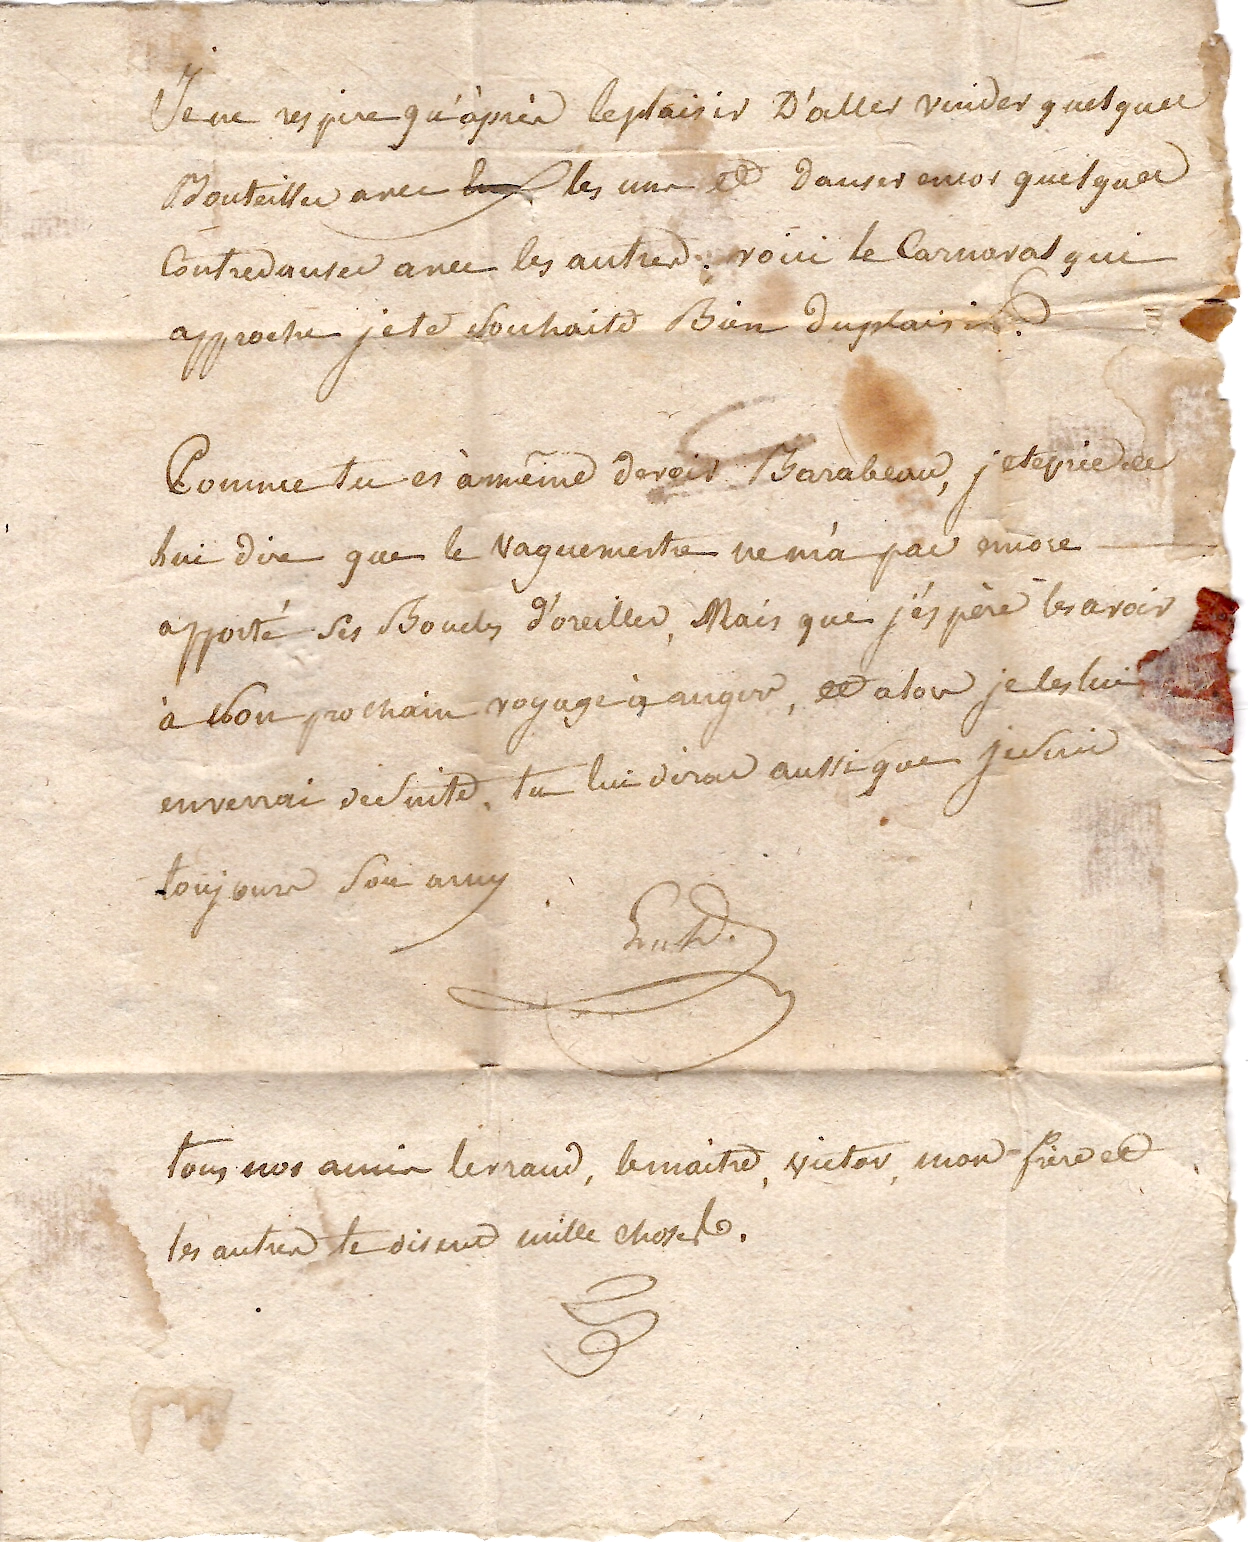 Je ne respire qu'àprès le plaisir D'aller vuider quelques
Bouteilles avec les uns et danser encor quelques
Contredanses avec les autres. voici le Carnaval qui
approche je te souhaite Bien du plaisir.
Comme tu es à même de voir Barabeau, je te prie de
lui dire que le Vaguemestre ne m'a pas encore
apporté ses Boucles d'oreilles, Mais que j'éspère les avoir
à son prochain voyage à angers, et alors je les lui
enverrai de suite. tu lui diras aussi que je suis
toujours son amy
tous nos amis lerraud, lemaitre, victor, mon frère et
les autres te disent mille choses.